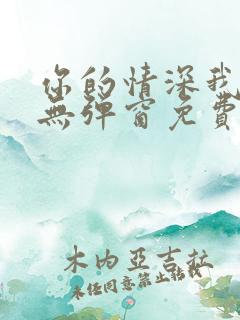 你的情深我
無彈窗免費
木内亞吉拉
未經同意禁止轉載